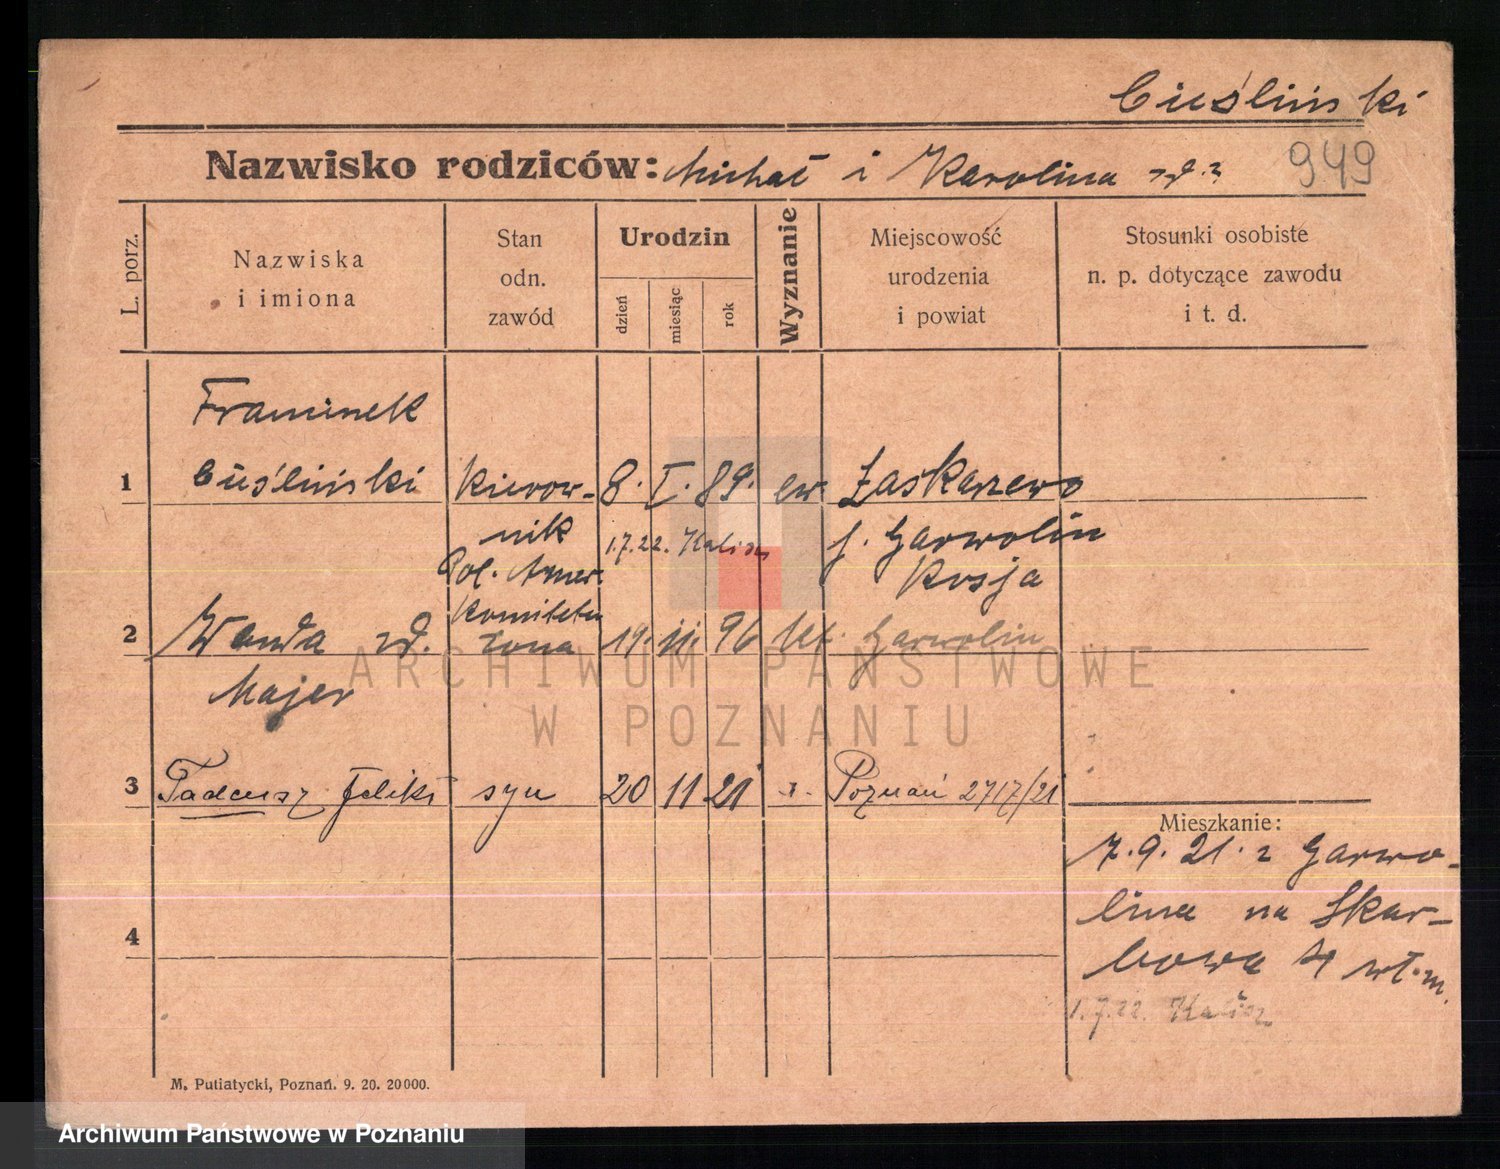 Cieśliński
Nazwisko rodziców: Michał i Karolina
949
L. porz.
Nazwiska
i imiona
Stan
odn.
zawód
Urodzin
dzień
miesiąc
rok
Wyznanie
Miejscowość
urodzenia
i powiat
Stosunki osobiste
n. p. dotyczące zawodu
i t. d.
Franciszek
1 Cieśliński Kierow- 8. I. 89. ew. Żaskarzewo
nik 1.7.22. Kalisz p. Garwolin
Pol. Amer. Rosja
Komitetu
2 Wanda zd. żona 19. 11. 96 kt. Garwolin
Majer
3 Tadeusz Feliks syn 20 11 21 Poznań 2717/21
4
Mieszkanie:
7.9.21. z Garwo-
lina na Skar-
bowa 4 wł.m.
1.7.22. Kalisz
M. Putiatycki, Poznań. 9. 20. 20000.
ARCHIWUM PAŃSTWOWE
W POZNANIU
Archiwum Państwowe w Poznaniu